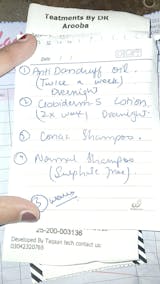 Teatments By DR
Arooba
Date: / /
① Anti Dandruff oil.
(Twice a week)
Overnight
② Clobiderm-S Lotion.
(2x week) Overnight.
③ Conac Shampoo.
④ Normal Shampoo
(Sulphate free)
25-200-003136
Developed By Taqaan tech contact us
03042320765